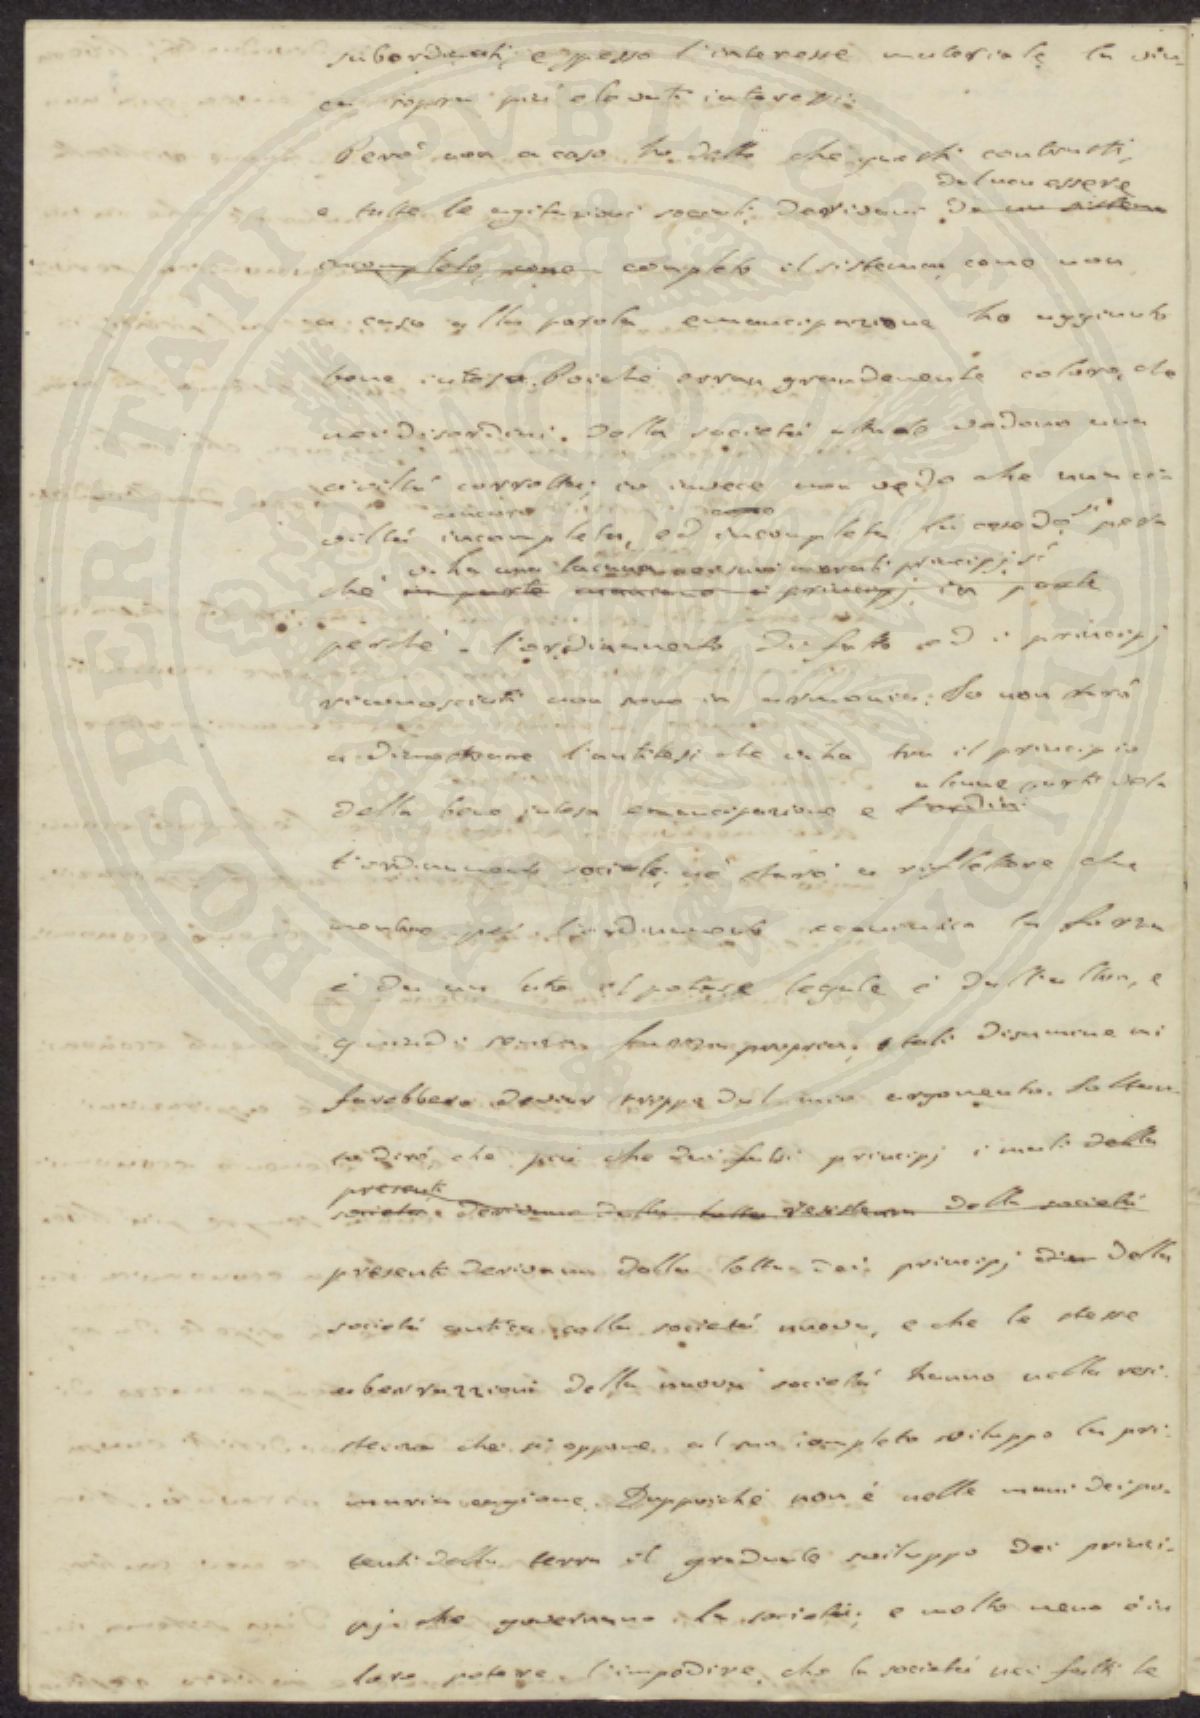 subordinati, e spesso l'interesse materiale la vin-
ca sopra più elevati interessi.
Però non a caso ho detto che questi contrasti,
dal non essere
e tutte le agitazioni sociali, derivano da un sistema
incompleto, come completo il sistema, come non
a caso alla parola emancipazione ho aggiunto
bene intesa. Poiché erran grandemente coloro, che
nei disordini della società attuale vedono una
civiltà corrotta; io invece non vedo che una ci-
ancora
viltà incompleta, ed incompleta la credo sì per-
v'ha una lacuna nei suoi morali principj, sì
ché in parte mancano i principj, in parte
perché l'ordinamento di fatto ed i principj
riconosciuti non sono in armonia. Io non starò
a dimostrare l'antitesi che v'ha tra il principio
alcune parti del
della bene intesa emancipazione e l'ordin
l'ordinamento sociale, né starò a riflettere che
mentre per l'ordinamento economico la forza
è da un lato il potere legale è dall'altro, e
quindi senza forza propria; tali disamine mi
farebbero deviar troppo dal mio argomento. Soltan-
to dirò, che più che dai falsi principj i mali della
presenti
società derivano dalla lotta resistenza della società
presente derivano dalla lotta dei principj della
società antica colla società nuova, e che le stesse
aberrazzioni della nuova società hanno nella resi-
stenza che si oppone al suo completo sviluppo la pri-
maria cagione. Dappoiché non è nelle mani dei po-
tenti della terra il graduale sviluppo dei princi-
pj che governano la società; e molto meno è in
loro potere l'impedire, che la società nei fatti le
PROSPERITATI PVBLICAE AVGENDAE